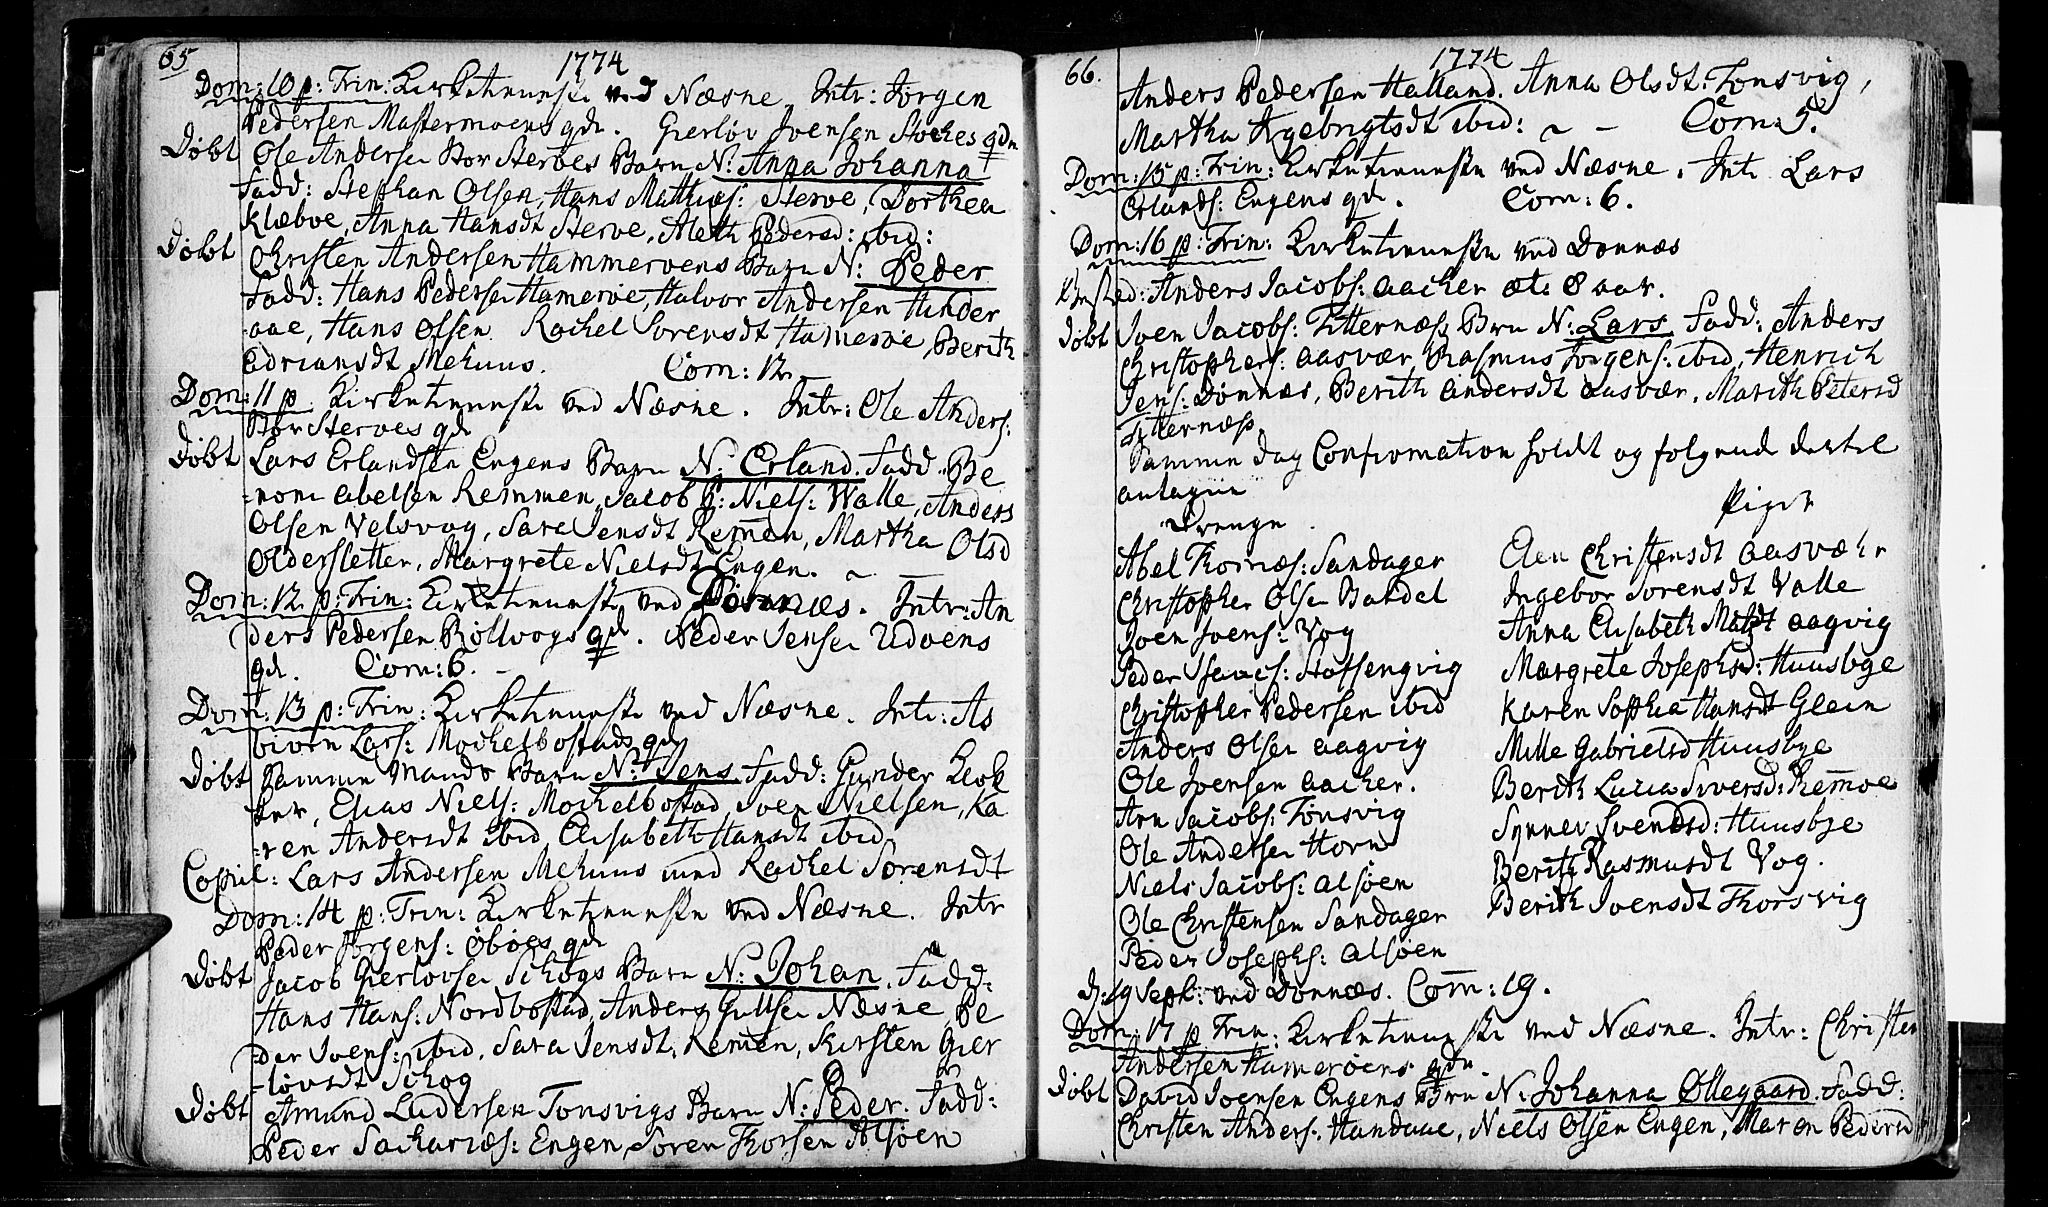 65
1774
Dom: 10 p: Trin: Kirketienniste ved Næsne. Intr: Jørgen
Pedersen Mastermoens qde. Gierløv Joensen Stoches qdn
Døbt Ole Andersen Stor Sterves Barn N: Anna Johanna
Fadd: Stephan Olsen, Hans Mathiæs: Sterve, Dorthea
Klæboe, Anna Hansdt Sterve, Aleth Pedersd: ibid:
Døbt Christen Andersen Hammerøens Barn N: Peder
Fadd: Hans Pedersen Hamerøe, Halvor Andersen Hinder
-aae, Hans Olsen Rachel Sorensdt Hamerøe, Berith
Adriansdt Mehuus. Com: 12.
Dom: 11 p Kirketienniste ved Næsne. Intr: Ole Anders:
Stor Sterves qd
Døbt Lars Erlandsen Engens Barn N. Erland. Fadd. Be
-noni Abelsen Remmen, Jacob P: Niels: Walle, Anders
Olsen Velsvog, Sara Jensdt Remen, Martha Olsd
Oldersletten, Margrete Nielsdt Engen. ~ —
Dom: 12. p: Trin: Kirketienniste ved Dønnæs. Intr: An
ders Pedersen Bollvogs qd. Peder Jensen Udvens
qd. Com: 6. —
Dom: 13 p: Trin: Kirketienniste ved Næsne. Intr: As
biørn Lars: Mochelbostads qd
Døbt Samme Mands Barn N: Jens Fadd: Gunder Klok
ker, Elias Niels: Mochelbostad, Joen Nielsen, Ka
-ren Andersdt ibid Elisabeth Hansdt ibid
Copul: Lars Andersen Mehuus med Rachel Sorensdt
Dom: 14 p: Trin: Kirketienniste ved Næsne. Intr
Peder Jørgens: Øbøes qd
Døbt Jacob Gierløvsen Schogs Barn N: Johan. Fadd:
Hans Hans: Nordbostad, Anders Gullsen Næsne, Pe
-der Joens: ibid, Sara Jensdt. Remen, Kirsten Gier
-løvsdt Schog
Døbt Amund Ludersen Tonsvigs Barn N: Peder. Fadd:
Peder Sachariæs: Engen, Soren Thorsen Alsøen
66.
1774
Anders Pedersen Halland. Anna Olsdt: Tonsvig,
Martha Ingebrigtsdt ibid: ~ — Com: 5.
Dom: 15 p: Trin: Kirketienniste ved Næsne. Intr Lars
Erlands: Engens qd. Com: 6.
Dom: 16 p: Trin: Kirketienniste ved Dønnæs
Anders Jacobs: Aacher æt. 8 aar.
Døbt Joen Jacobs: Titternæs, Brn N: Lars Fadd: Anders
Christophers: Aasvær, Rasmus Jørgens: ibid, Henrich
Jens: Dønnæs, Berith Andersdt Aasvær, Marith Petersd
Titternæss
Samme Dag Confirmation holdt og følgende dertil
antagne
Drenge
Abel Thomæs: Sandager
Christopher Olsen Bardal
Joen Joens: Vog
Peder Isaacs: Stoffengvig
Christopher Pedersen ibid
Anders Olsen Aagvig
Ole Joensen Aacher.
Arn Jacobs: Tønsvig
Ole Andersen Horn
Niels Jacobs: Alsøen
Ole Christensen Sandager
Peder Josephs: Alsøen
Piger
Elen Christensdt Aasvær
Ingebor Sorensdt Valle
Anna Elisabeth Matdt Aagvig
Margrete Josephsd: Huusbye
Karen Sophia Hansdt Glein
Mille Gabrielsd Huusbye
Berith Lucia Siversd: Remoe
Synnev Svendsd: Huusbye
Berith Rasmusdt Vog.
Berith Joensdt Thorsvig
D: 19 Sept: ved Dønnæs. Com: 19.
Dom: 17 p Trin: Kirketienniste ved Næsne. Intr: Christen
Andersen Hamerøens qdn.
Døbt David Joensen Engens Brn N: Johanna Øllegaard. Fadd:
Christen Anders: Handaae, Niels Olsen Engen, Maren Pedersd